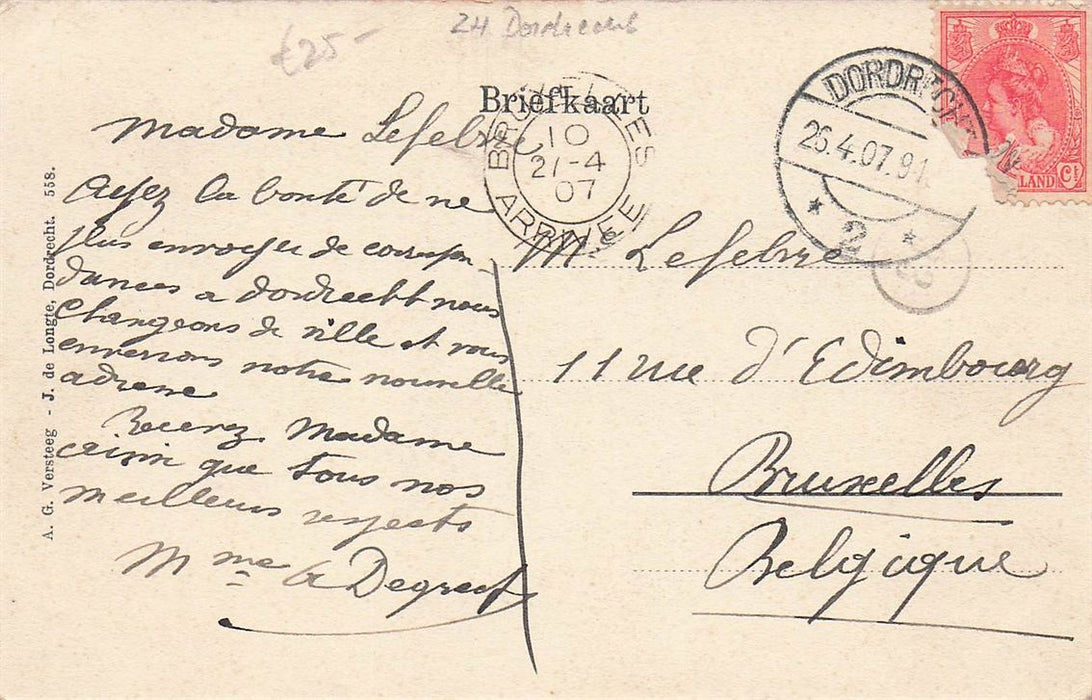 £25-
ZH Dordrecht
Briefkaart
BRUXELLES
10
21-4
07
ARRIVEE
DORDRECHT
26.4.07.9-1
2
LAND
Ct
madame Lefebvre
ayez la bonté de ne
plus envoyer de correspon-
dances a dordrecht nous
changeons de ville et vous
enverrons notre nouvelle
adresse
Recevez Madame
ainsi que tous nos
meilleurs respects
Mme Degreef
Me Lefebvre
11 rue d'Edimbourg
Bruxelles
Belgique
A. G. Versteeg - J. de Longte, Dordrecht. 558.